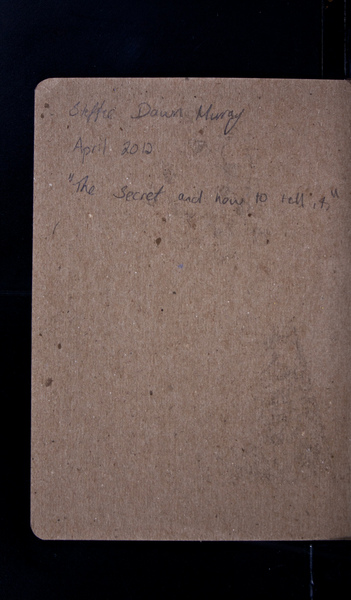 Dawn Muray
April 2012
"The Secret and how to tell it"